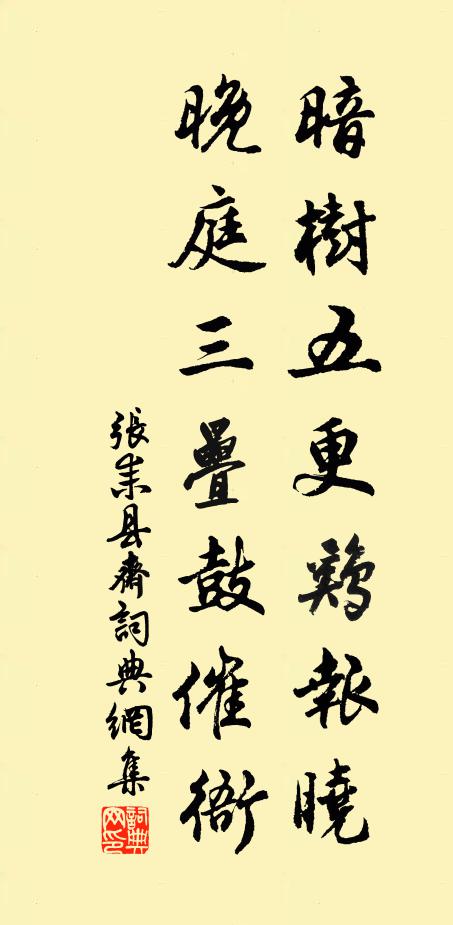 暗樹五更鷄報曉
晚庭三疊鼓催衙
張耒县齋詞典網集
詞典网印